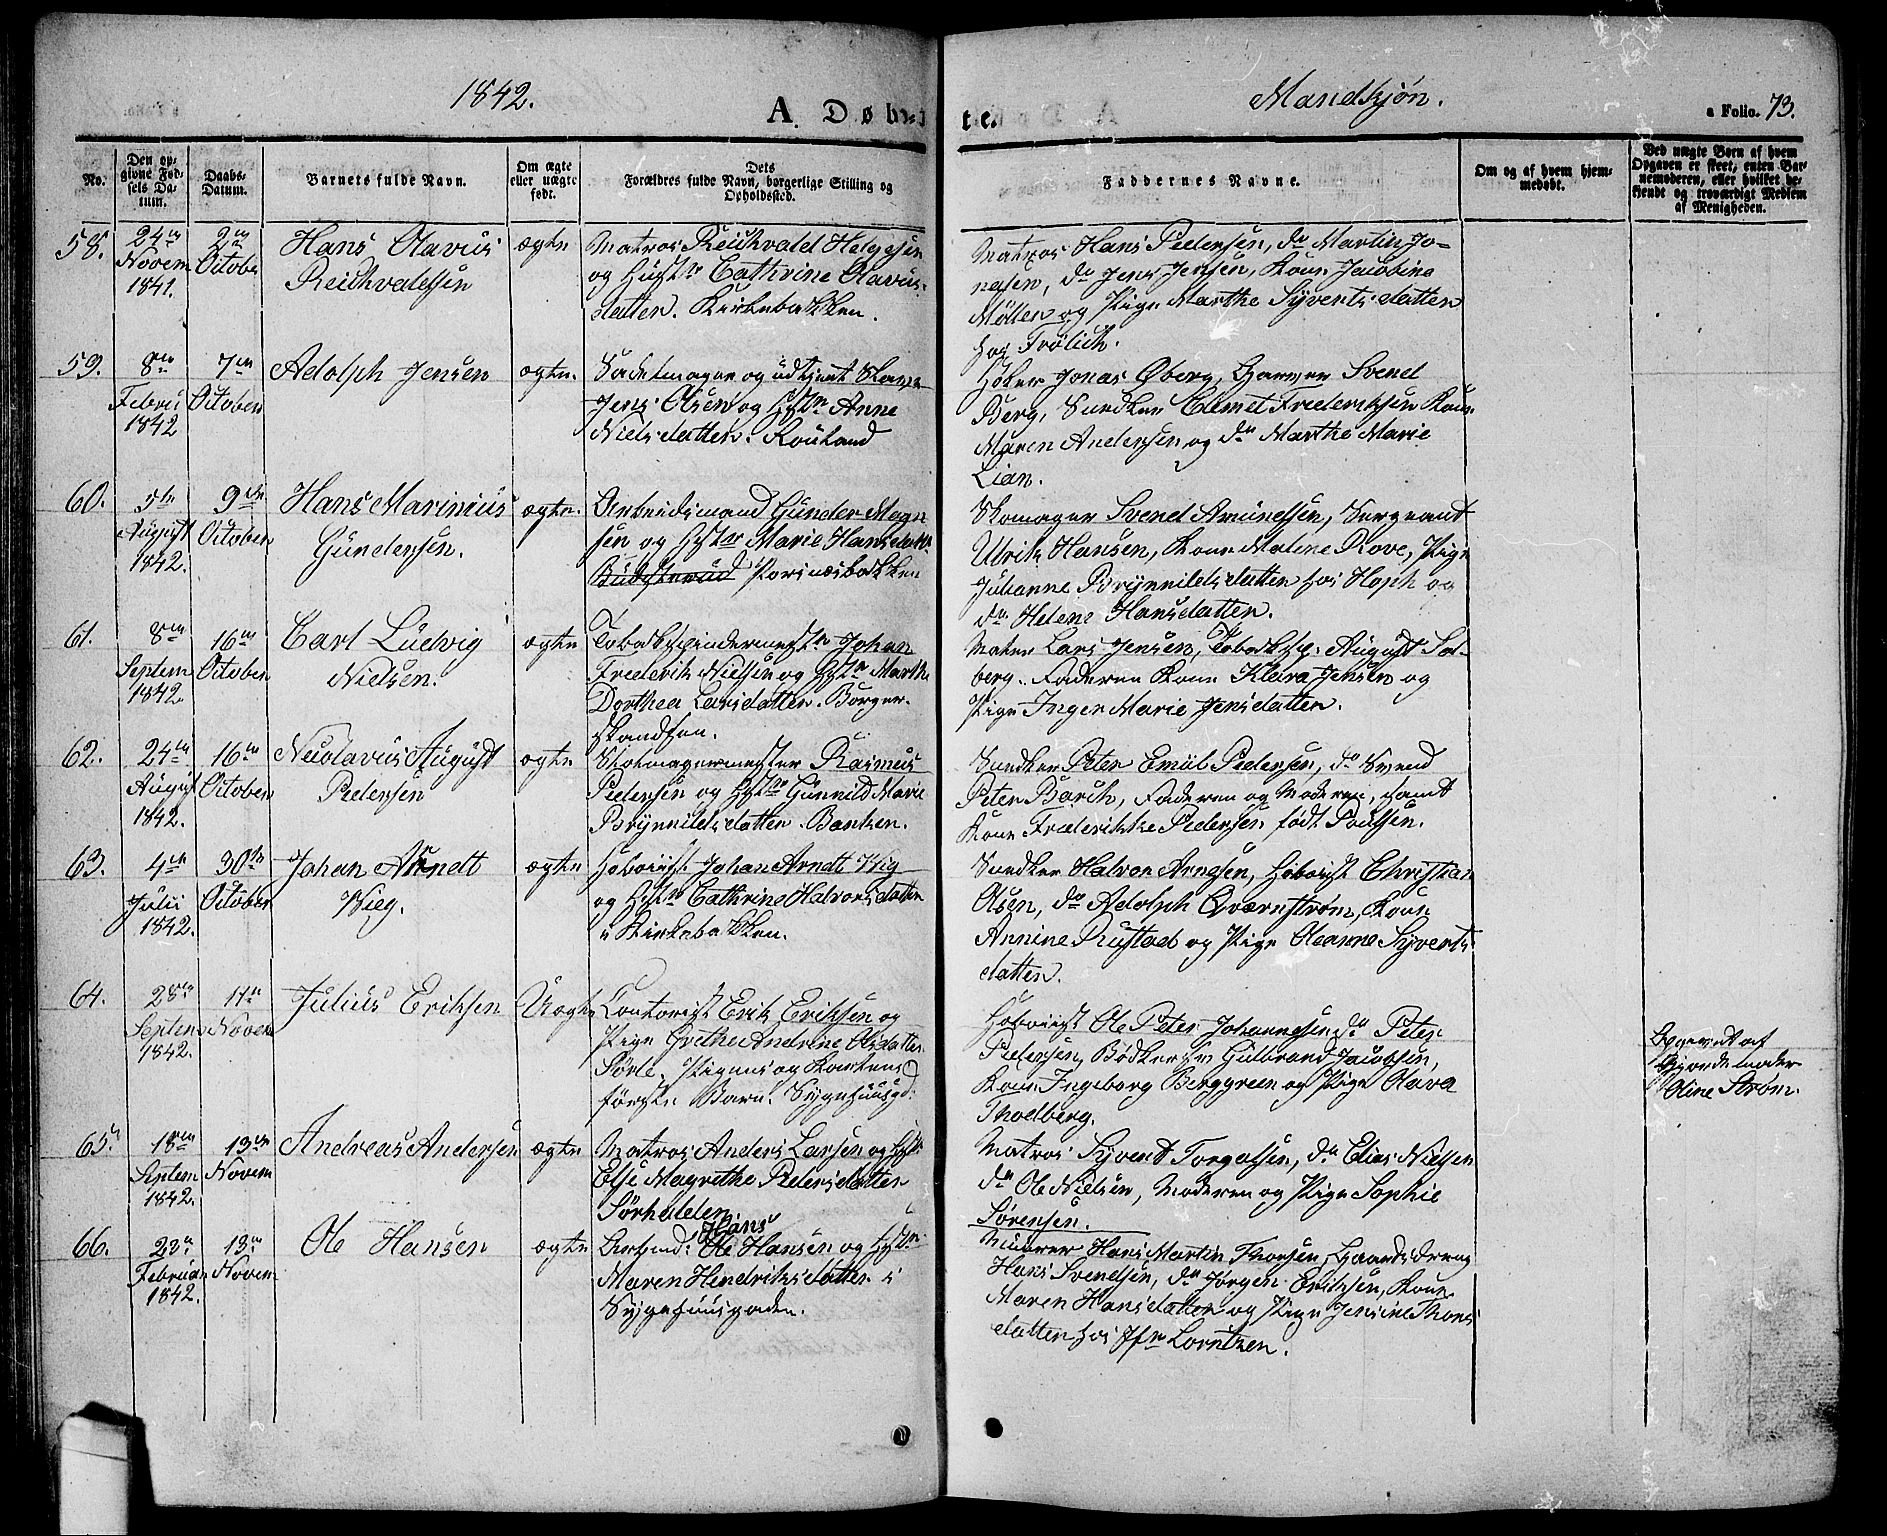 1842.
A. Døb=
te.
Mandkjøn.
a Folio. 73.
No.
Den op-
givne Fød-
sels Da-
tum.
Daabs-
Datum.
Barnets fulde Navn.
Om ægte
eller uægte
født.
Dets
Forældres fulde Navn, borgerlige Stilling og
Opholdssted.
Faddernes Navne.
Om og af hvem hjem-
medøbt.
Ved uægte Børn af hvem
Opgaven er skeet, enten Bar-
nemoderen, eller hvilket be-
kjendt og troværdigt Medlem
af Menigheden.
58.
24de
Novem
1841.
2den
October
Hans Olavus
Reichvaldsen
ægte
Matros Reichvald Helgesen
og Hustr Cathrine Olavus-
datter. Kirkebakken.
Matros Hans Pedersen, do Martin Jo-
nasen, do Jens Jensen, Kone Jacobine
Møller og Pige Marthe Syvertsdatter
hos Frölich.
59.
8de
Febru
1842
7de
October
Adolph Jensen
ægte.
Sadelmager og udtjent Slave
Jens Olsen og Hstr Anne
Nielsdatter.
Høker Jonas Øberg, Garver Svend
Berg, Snedker Clemet Frederiksen Kone
Maren Andersen og do Marthe Marie
Lian.
60.
5te
August
1842.
9de
October
Hans Marinius
Gundersen.
ægte.
Arbeidsmand Gunder Magn
sen og Hstr Marie Hansdatt.
Skomager Svend Amundsen, Sergeant
Ulrik Hansen, Kone Malene Rove, Pige
Julianne Brynnildsdatter hos Hoph og
do Helene Hansdatter.
61.
8de
Septem
1842.
16de
October
Carl Ludvig
Nielsen.
ægte
Tobakspindermestr Johan
Frederik Nielsen og Hstr Marthe
Dorthea Larsdatter. Borger-
skandsen.
Maler Lars Jensen, Tobaksp. August Sol-
berg. Faderen Kone Klara Jensen og
Pige Inger Marie Jensdatter.
62.
24de
August
1842.
16de
October
Nicolavus August
Pedersen
ægte
Skomagermester Rasmus
Pedersen og Hstr Gunnild Marie
Brynnildsdatter. Banken.
Snedker Peter Emil Pedersen, do Svend
Peter Barch, Faderen og Moderen, samt
Kone Frederikke Pedersen født Poulsen.
63.
4de
Julii
1842.
30te
October
Johan Arndt
Wieg.
ægte
Hoboist Johan Arndt Wig
og Hstr Cathrine Halvorsdatter
i Kirkebakken.
Snedker Halvor Arnesen, Hoboist Christian
Olsen, do Adolph Qværnstrøm, Kone
Annine Rustad og Pige Oleanne Syverts
datter.
64.
28de
Septem
1842.
11te
Novem
Julius Eriksen
Uægte
Contorist Erik Eriksen og
Pige Grethe Andrine Olsdatter
Børn. Sygehuusgd:
Hoboist Ole Peter Johannesen do Peter
Pedersen, Bødkersv Gulbrand Jacobsen,
Kone Ingeborg Berggreen og Pige Olava
Thoelberg.
Opgivet af
Gjordemoder
Oline Strøm.
65.
18de
Septem
1842.
13de
Novem
Andreas Andersen
ægte
Matros Anders Larsen og Hst
Else Magrethe Pedersdatter
Sørhalden.
Matros Syvert Torgalsen, do Elias Nielsen
do Ole Nielsen, Moderen og Pige Sophie
Sørensen.
66.
23de
Februar
1842.
13de
Novem
Ole Hansen
ægte
Arbmd: Ole Hans Hansen og Hstr
Maren Hendriksdatter i
Sygehuusgaden.
Murer Hans Martin Thorsen, Gaardsdreng
Hans Svendsen, do Jørgen Eriksen, Kone
Maren Hansdatter og Pige Jensine Thons
datter hos Jfr Lorntzen.